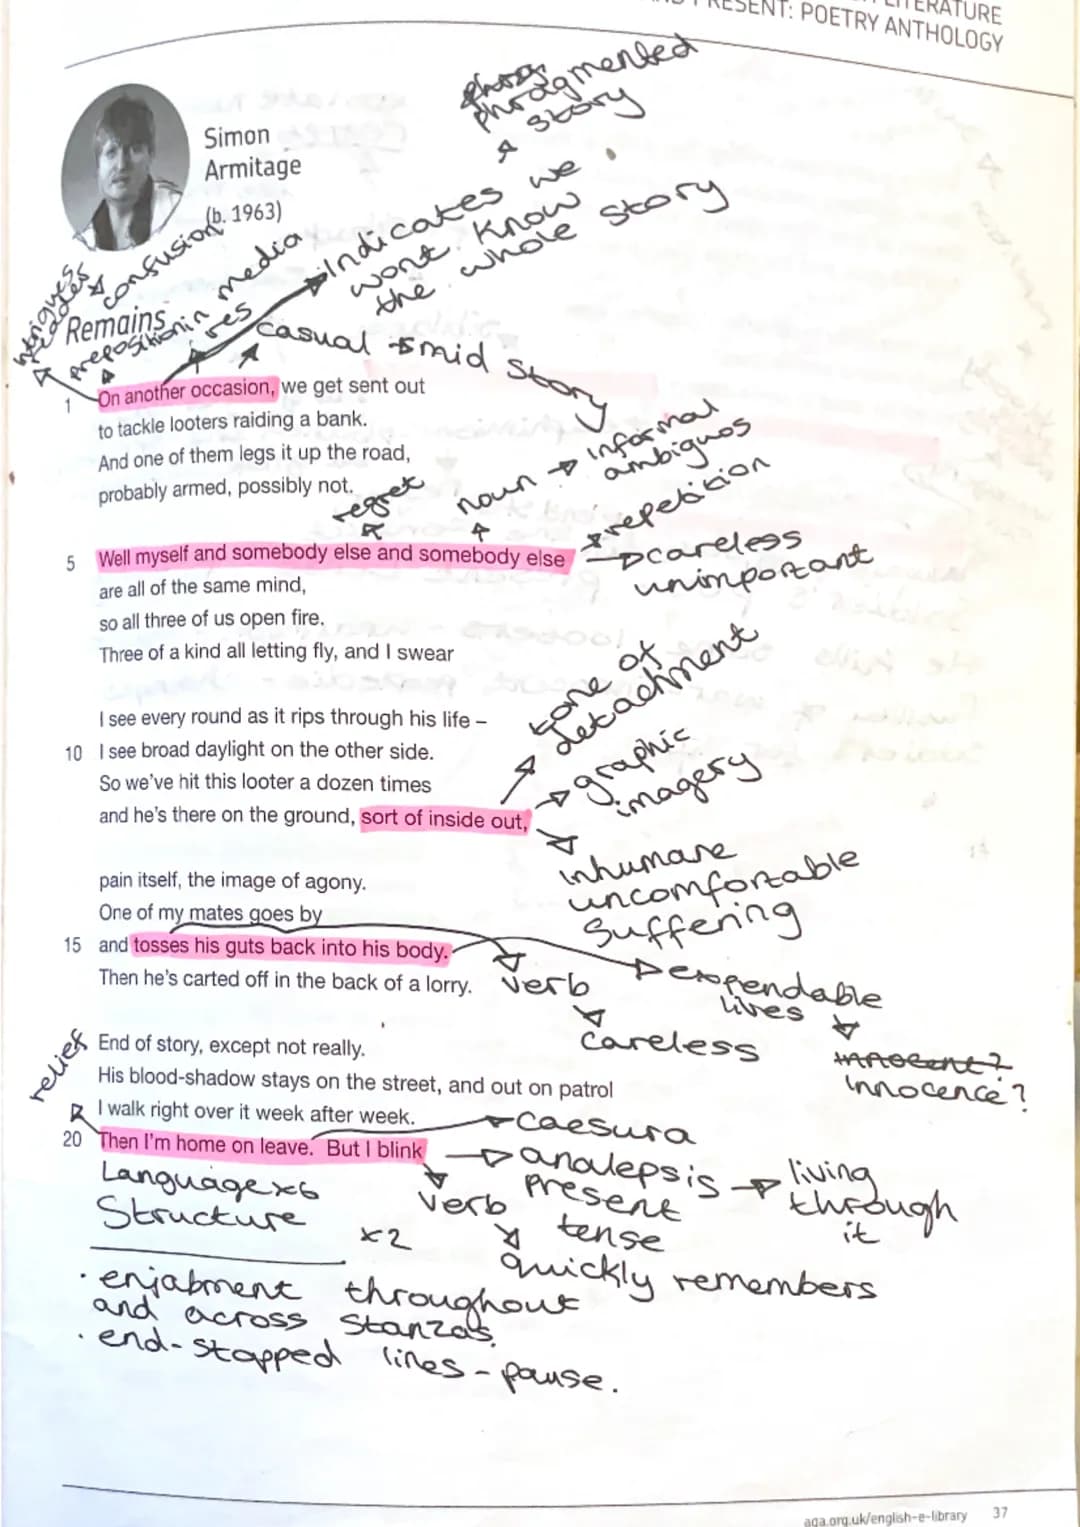 LITERATURE
PRESENT: POETRY ANTHOLOGY
Simon
Armitage
(b. 1963)
phragmented
story
Indicates we
wont know
the whole story
intrigues
readers
confusion
in media
res
preposition
casual
mid story
Remains
1 On another occasion, we get sent out
to tackle looters raiding a bank.
And one of them legs it up the road,
probably armed, possibly not.
regret
noun
informal
ambiguos
repetition
careless
unimportant
5 Well myself and somebody else and somebody else
are all of the same mind,
so all three of us open fire.
Three of a kind all letting fly, and I swear
I see every round as it rips through his life –
10 I see broad daylight on the other side.
So we've hit this looter a dozen times
and he's there on the ground, sort of inside out,
tone of
detachment
graphic
imagery
inhumane
uncomfortable
suffering
pain itself, the image of agony.
One of my mates goes by
15 and tosses his guts back into his body.
Then he's carted off in the back of a lorry.
verb
careless
expendable
lives
innocent?
innocence?
relief
End of story, except not really.
His blood-shadow stays on the street, and out on patrol
I walk right over it week after week.
20 Then I'm home on leave. But I blink
caesura
analepsis
living
through
it
verb
present
tense
quickly remembers
Language x6
Structure x2
· enjabment throughout
and across stanzas.
· end-stopped lines - pause.
aqa.org.uk/english-e-library 37